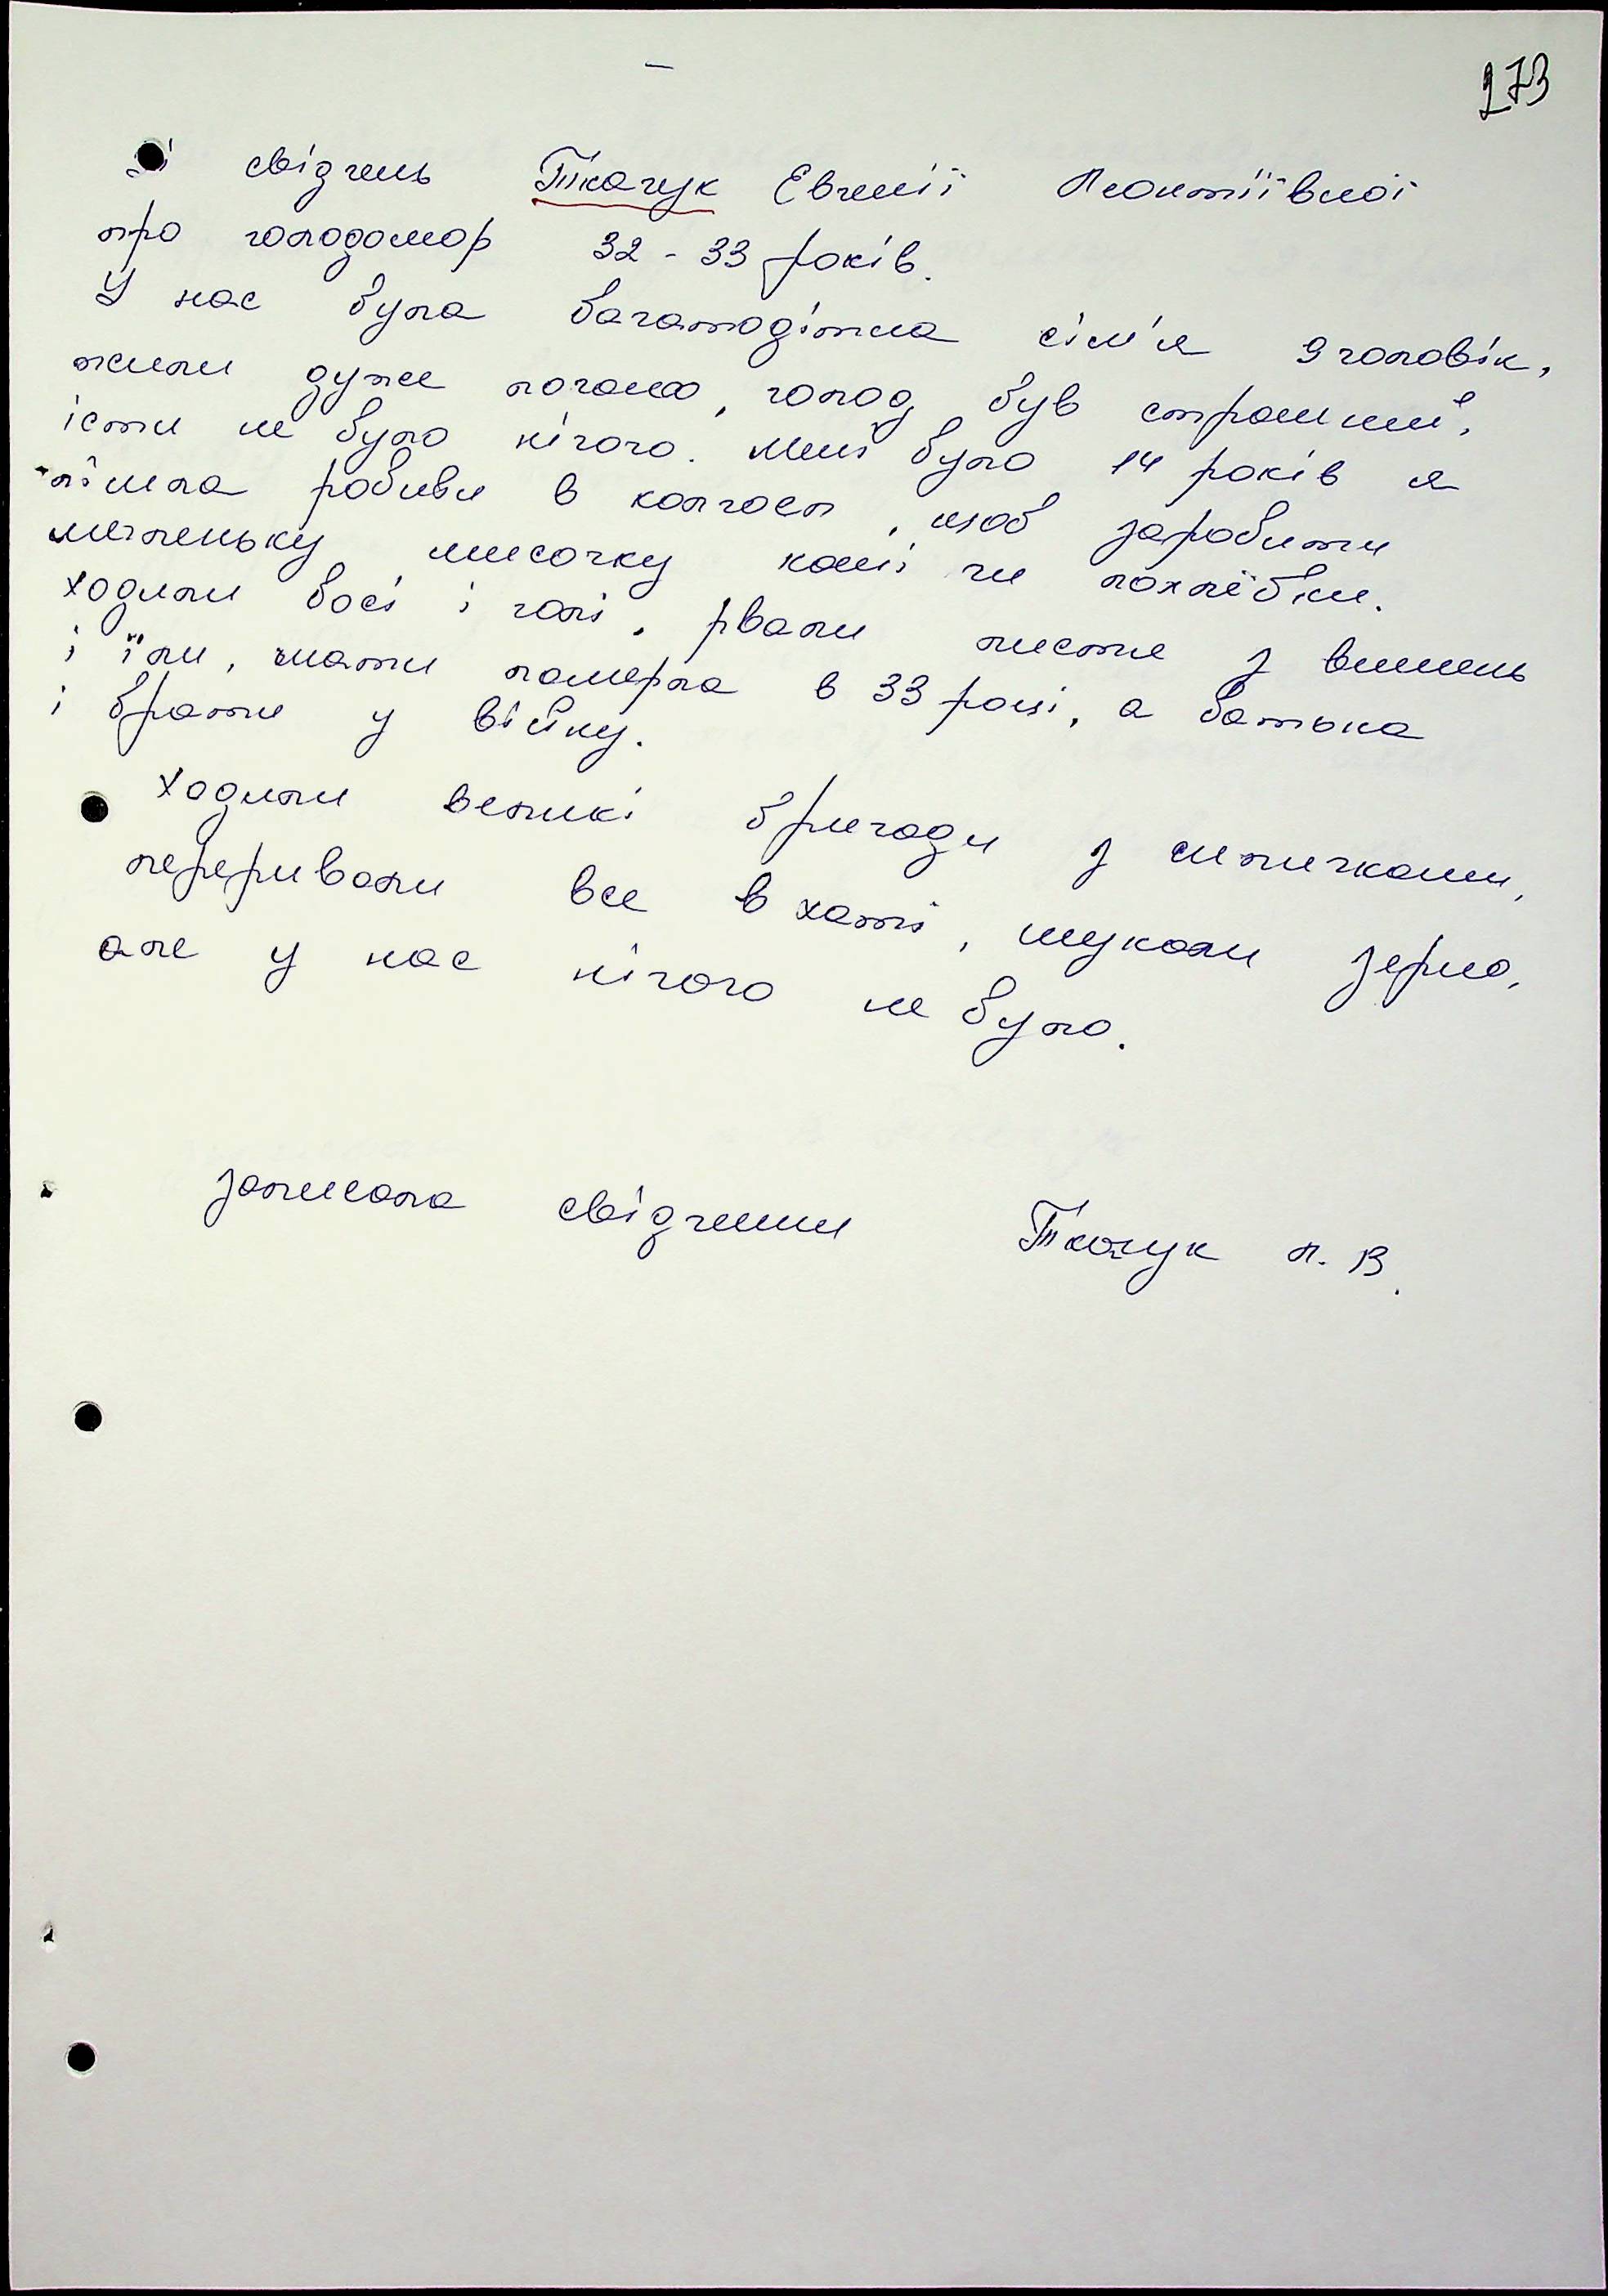 273
Зі свідчень Ткачук Евгенії Леонтіївної
про голодомор 32 - 33 років.
У нас була багатодітна сім'я 9 чоловік,
жили дуже погано, голод був страшний,
істи не було нічого. Мені було 14 років я
пішла робиви в колгосп, щоб заробити
миленьку мисочку каші чи похлёбки.
Ходили босі і голі, рвали листя з вишень
і їли, мати померла в 33 році, а батька
і брати у війну.
Ходили великі бригади з сипичками,
переривали все в хаті, шукали зерно,
але у нас нічого не було.
записала свідчини Ткачук Л. В.